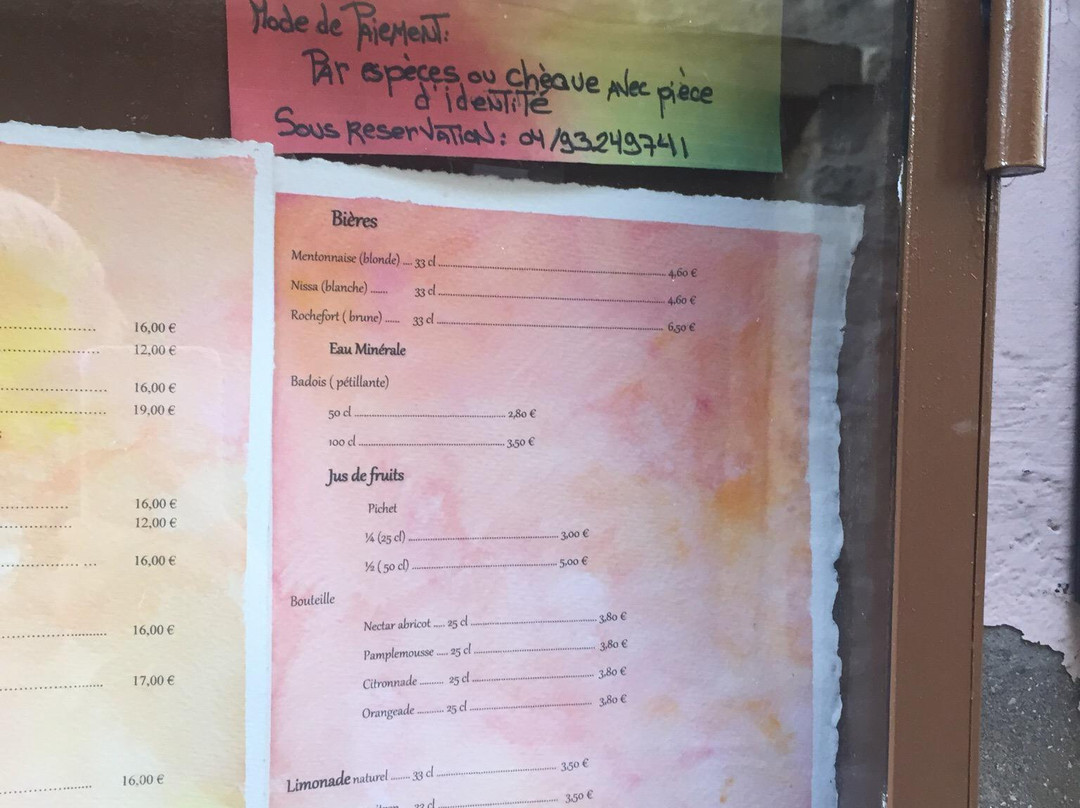 Mode de Paiement:
Par espèces ou chèque avec pièce
d'identité
Sous Reservation: 04/93249741
16,00 €
12,00 €
16,00 €
19,00 €
16,00 €
12,00 €
16,00 €
16,00 €
17,00 €
16,00 €
Bières
Mentonnaise (blonde) .... 33 cl ........ 4,60 €
Nissa (blanche) ...... 33 cl ........ 4,60 €
Rochefort ( brune) ..... 33 cl ........ 6,50 €
Eau Minérale
Badois ( pétillante)
50 cl ........ 2,80 €
100 cl ........ 3,50 €
Jus de fruits
Pichet
¼ (25 cl) ........ 3,00 €
½ ( 50 cl) ........ 5,00 €
Bouteille
Nectar abricot .... 25 cl ........ 3,80 €
Pamplemousse .... 25 cl ........ 3,80 €
Citronnade ........ 25 cl ........ 3,80 €
Orangeade ......... 25 cl ........ 3,80 €
Limonade naturel ...... 33 cl ........ 3,50 €
33 cl ........ 3,50 €